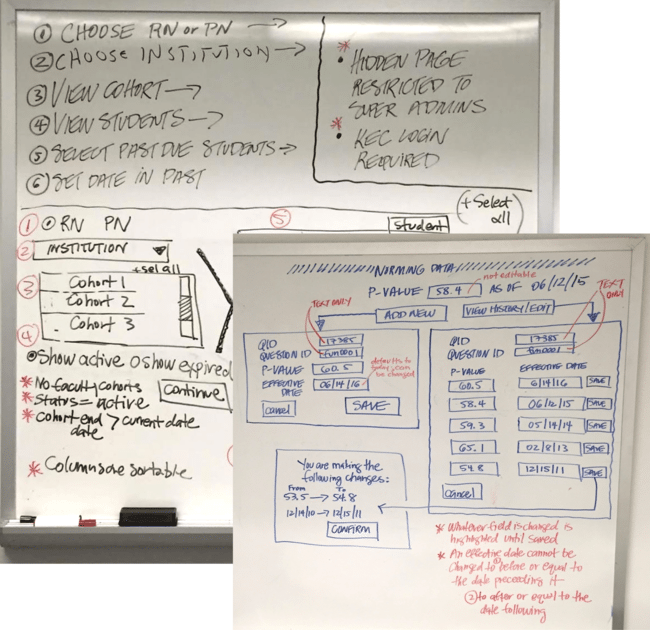 ① CHOOSE RN or PN →
② CHOOSE INSTITUTION →
③ VIEW COHORT →
④ VIEW STUDENTS →
⑤ SELECT PAST DUE STUDENTS →
⑥ SET DATE IN PAST
* • HIDDEN PAGE
RESTRICTED TO
SUPER ADMINS
* • KEC LOGIN
REQUIRED
+Select
all
① RN PN
② INSTITUTION
+sel all
③ Cohort 1
Cohort 2
④ Cohort 3
⑤
Student
Show active o show expired
* No faculty cohorts
* Status = active
* cohort end > current date
date
Continue
* Columns are sortable
NORMING DATA
P-VALUE 58.4 AS OF 06/12/15
not editable
TEXT ONLY
TEXT
ONLY
ADD NEW
VIEW HISTORY/EDIT
QID 17385
QUESTION ID
P-VALUE 60.5
EFFECTIVE 06/14/16
DATE
defaults to
today, can
be changed
Cancel SAVE
QID 17385
QUESTION ID
P-VALUE EFFECTIVE DATE
60.5 6/14/16 SAVE
58.4 06/12/15 SAVE
59.3 05/14/14 SAVE
65.1 02/8/13 SAVE
54.8 12/15/11 SAVE
Cancel
You are making the
following changes:
From To
53.5 → 54.8
12/14/10 → 12/15/11
CONFIRM
* Whatever field is changed is
highlighted until saved
* An effective date cannot be
changed to ① before or equal to
the date preceeding it
② to after or equal to the
date following